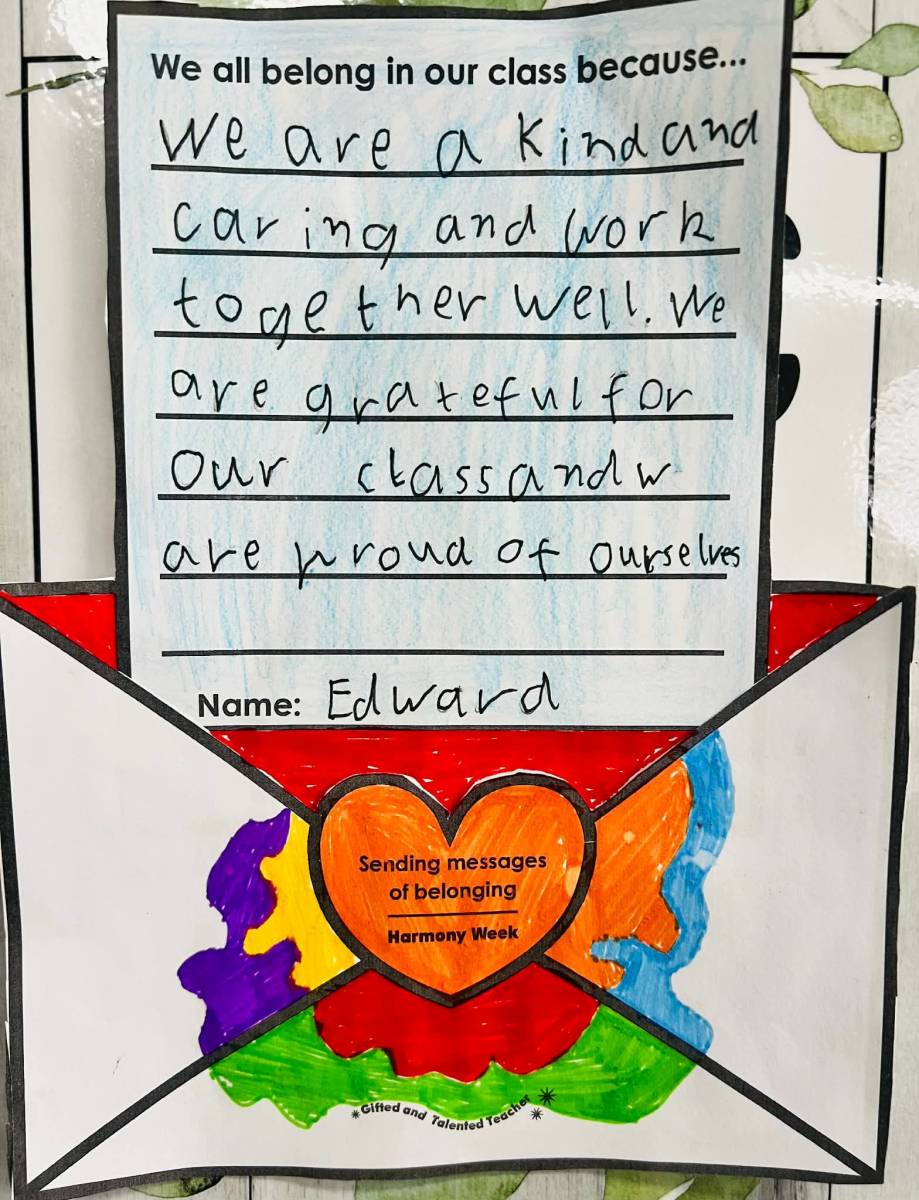 We all belong in our class because...
We are a kind and
caring and work
together well. We
are grateful for
our class and w
are proud of ourselves
Name: Edward
Sending messages
of belonging
Harmony Week
Gifted and Talented Teacher